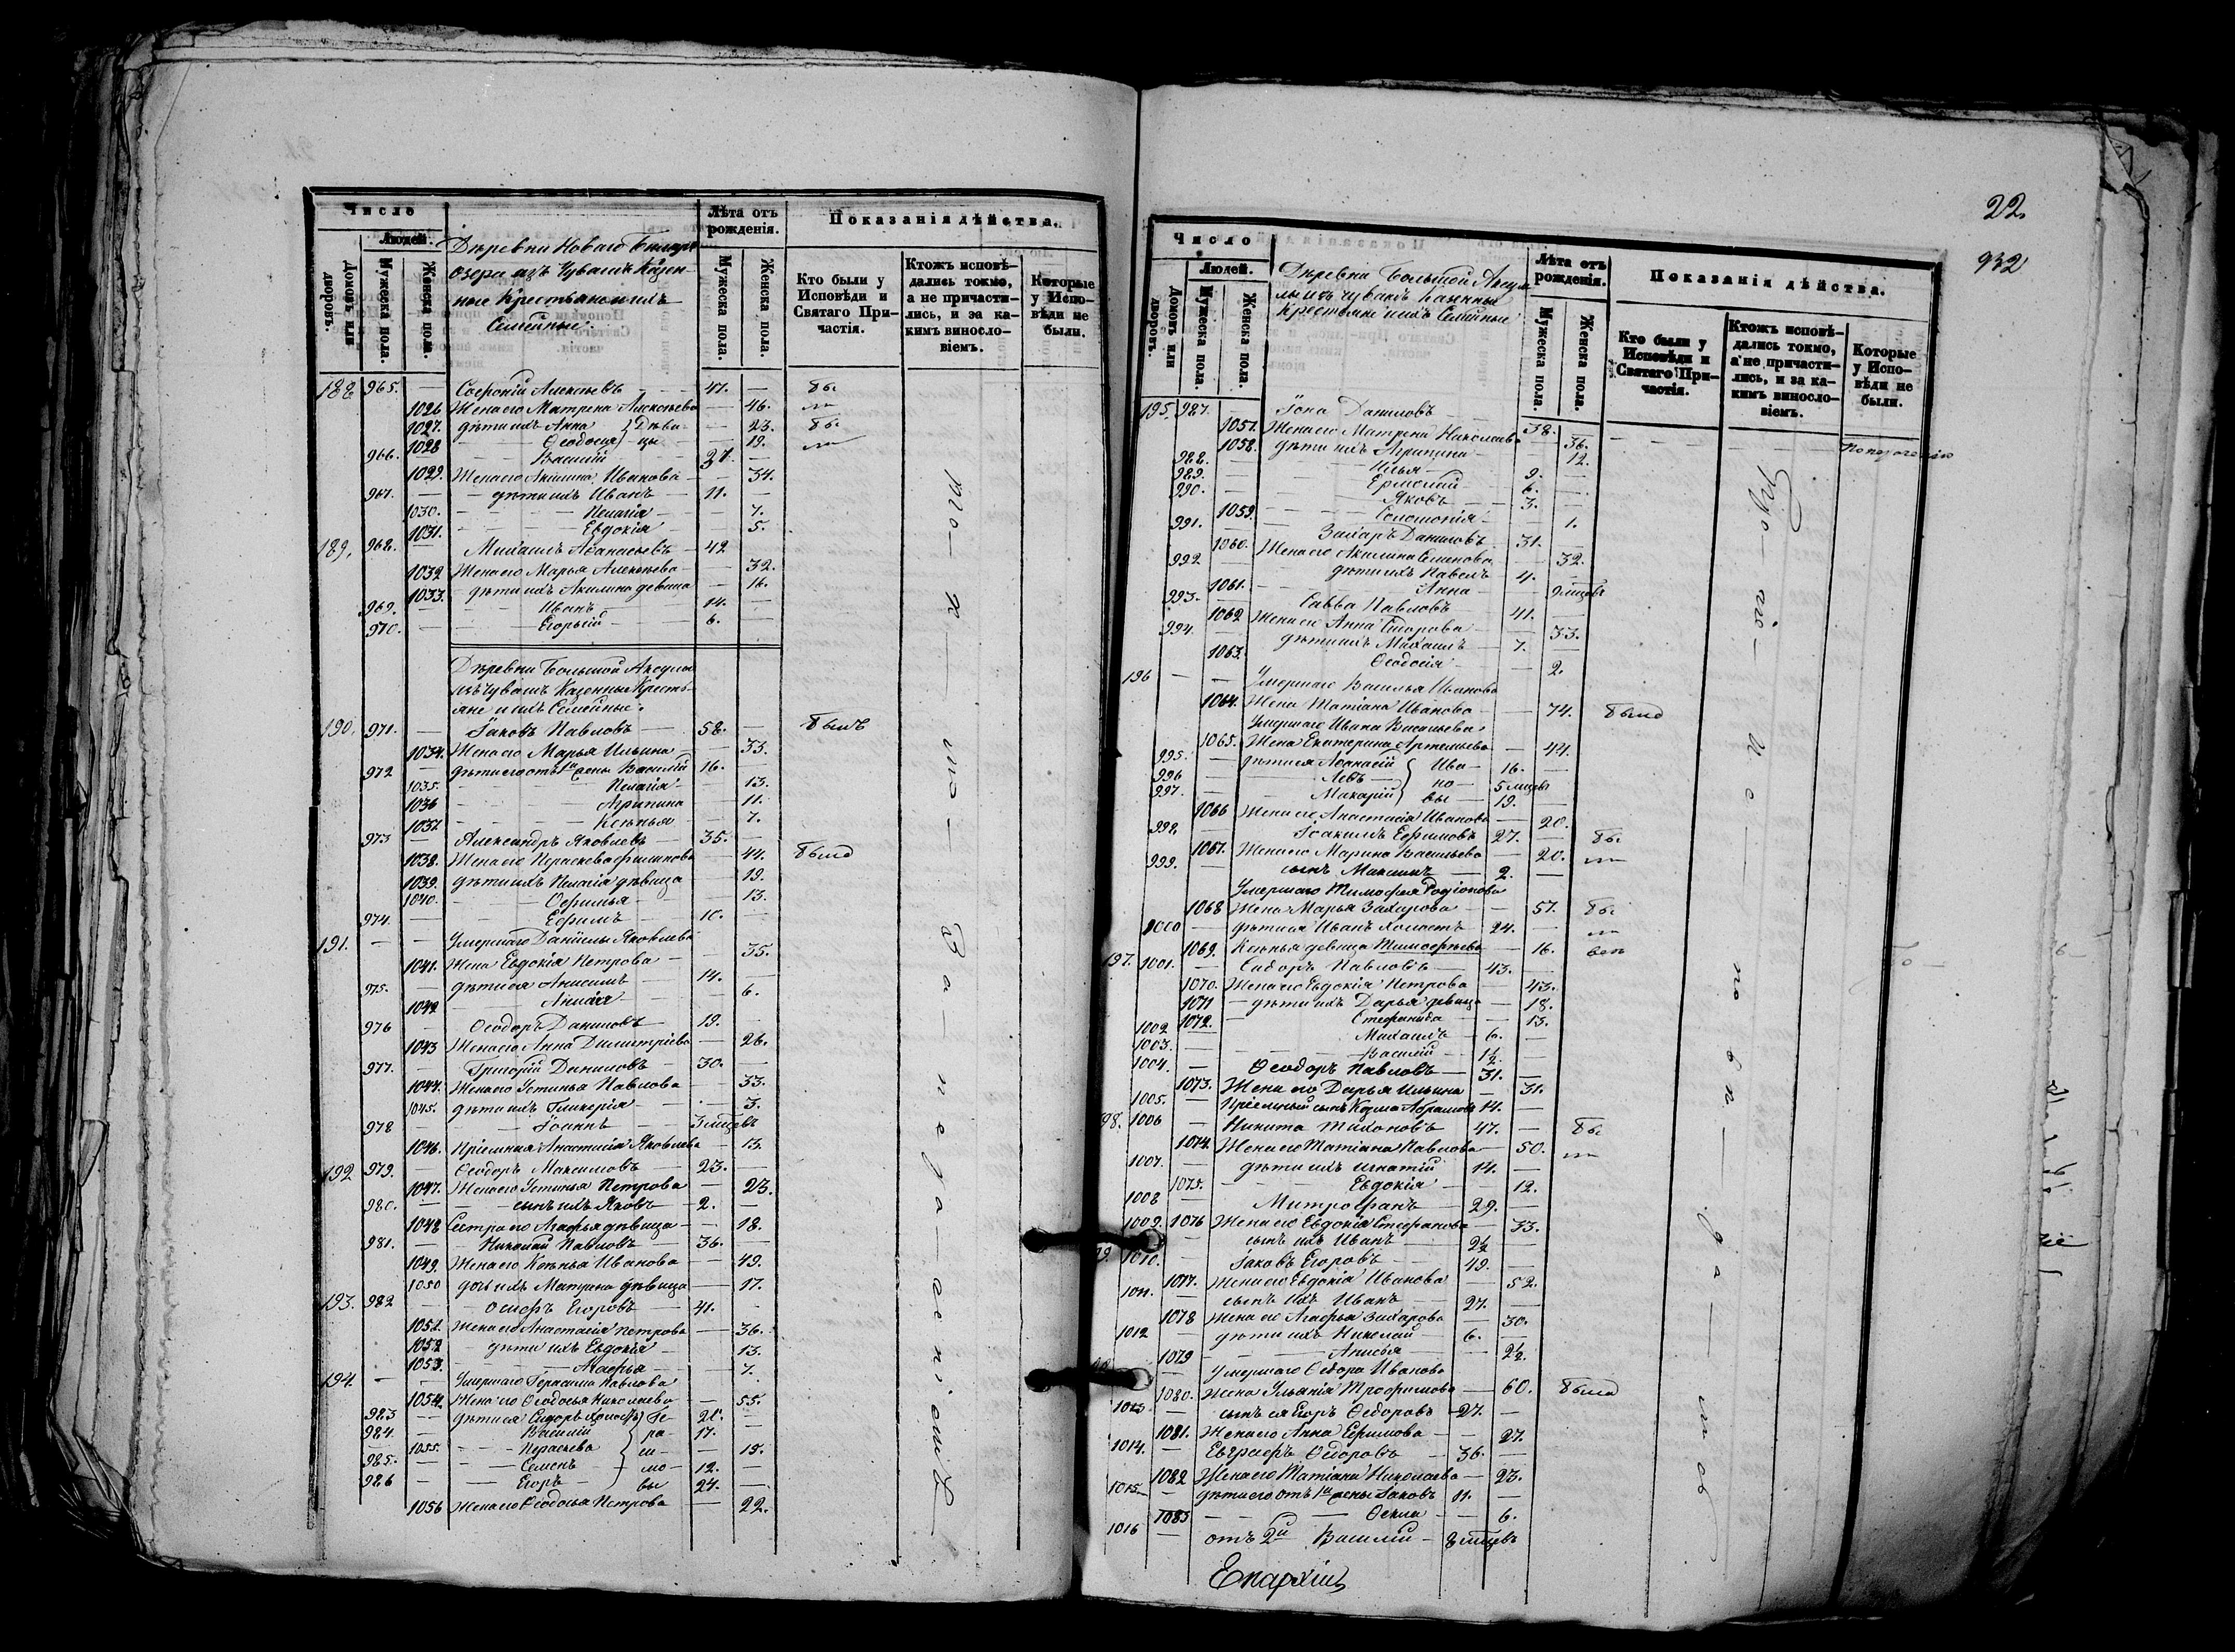 Число
Людей.
Лѣта отъ рожденія.
Показанія дѣйства.
Домовъ или дворовъ.
Мужеска пола.
Женска пола.
Деревни Новаго
озера изъ Чувашъ Казен-
ные Крестьяне и ихъ
Семейные.
Мужеска пола.
Женска пола.
Кто были у Исповѣди и Святаго При-частія.
Ктожъ исповѣ-дались токмо, а не причасти-лись, и за ка-кимъ винослo-віемъ.
Которые у Испо-вѣди не были.
188 965. — Алексѣевъ 47. — бы
1026 Жена его Матрена Алексѣева — 46. ли
1027. дѣти ихъ Анна } Дѣви — 23. бы
1028 Ѳеодосья } цы — 19. ли
966. — Василій 37. —
1029. Жена его Акилина Иванова — 34.
967. — дѣти ихъ Иванъ 11. —
1030. Пелагія — 7.
1031. Евдокія — 5.
189. 968. — Михаилъ Аѳанасьевъ 42
1032 Жена его Марья Алексѣева — 32.
1033. дѣти ихъ Акилина девица — 16.
969. — Иванъ 14. —
970. — Егорьій 6. —
Деревни Большой Аксумлы
изъ чувашъ Казенные Кресть-
яне и ихъ Семейные.
190. 971. — Іаковъ Павловъ 58. — былъ
1034. Жена его Марья Ильина — 33.
972 — дѣти его отъ 1й жены Василій 16.
1035. Пелагія — 13.
1036 Агрипина — 11.
1037. Ксенья — 7.
973 — Александръ Яковлевъ 35. —
1038. Жена его Параскева Филипова — 44. была
1039. дѣти ихъ Пелагія дѣвица — 19.
1040. Ефимья — 13.
974. — Ефимъ 10. —
191. — — Умершаго Данилы Яковлева
1041. Жена Евдокія Петрова — 35.
975. — дѣти ея Анисимъ 14. —
1042 — 6.
976 — Ѳеодоръ Даниловъ 19. —
1043 Жена его Анна Димитріева — 26.
977. — Григорій Даниловъ 30. —
1044. Жена его Устинья Павлова — 33.
1045. дѣти ихъ Гликерія — 3.
978 — Іоаннъ 3 мцевъ
1046. Пріемная Анастасія Яковлева — 13.
192 979. — Ѳеодоръ Максимовъ 23. —
1047. Жена его Устинья Петрова — 23.
980. — сынъ ихъ Яковъ 2. —
1048 Сестра его Агафья дѣвица — 18.
981. — Николай Павловъ 36. —
1049. Жена его Ксенья Иванова — 49.
1050 дочь ихъ Матрена дѣвица — 17.
193. 982 — Осифъ Егоровъ 41. —
1051. Жена его Анастасія Петрова — 36.
1052 дѣти ихъ Евдокія — 13.
1053. Агафья — 7.
194. — — Умершаго Герасима Павлова
1054. Жена его Ѳеодосья Николаева — 55.
983 — дѣти ея Сидоръ холостъ } Ге- 20. —
984. — Василій } ра- 17. —
1055. Параскева } си- — 19.
985. — Семенъ } мо- 12. —
986 — Егоръ } вы 24. —
1056 Жена его Ѳеодосья Петрова — 22.
22.
932
Число
Людей.
Лѣта отъ рожденія.
Показанія дѣйства.
Домовъ или дворовъ.
Мужеска пола.
Женска пола.
Деревни Большой Аксум-
лы изъ чувашъ Казенные
Крестьяне и ихъ Семейные
Мужеска пола.
Женска пола.
Кто были у Исповѣди и Святаго При-частія.
Ктожъ исповѣ-дались токмо, а не причасти-лись, и за ка-кимъ винослo-віемъ.
Которые у Испо-вѣди не были.
195. 987. — Іона Даниловъ 38. —
1057. Жена его Матрена Николаева — 36.
1058. дѣти ихъ Агрипина — 12.
988. — Илья 9. —
989. — Ермолай 6. —
990. — Яковъ 3. —
1059. Соломонія — 1.
991. — Захаръ Даниловъ 31. —
1060. Жена его Акилина Семенова — 32.
992 — дѣти ихъ Павелъ 4. —
1061. Анна — 9 мцевъ
993. — Савва Павловъ 41. —
1062 Жена его Анна Егорова — 33.
994. — дѣти ихъ Михаилъ 7. —
1063. Ѳеодосія — 2.
196 — — Умершаго Василья Иванова
1064. Жена Татіана Иванова — 74. была
Умершаго Ивана Васильева
1065. Жена Екатерина Артемьева — 44.
995. — дѣти ея Аѳанасій } Ива- 16. —
996 Левъ } но- 5 мцевъ
997. Макарій } вы 19. —
1066 Жена его Анастасія Иванова — 20.
998. — Іоакимъ Ефимовъ 27. — бы
1067. Жена его Марина Васильева — 20. ли
999. — сынъ Максимъ 2. —
Умершаго Тимофея Родіонова
1068 Жена Марья Захарова — 57. бы
1000 — дѣти ея Иванъ холостъ 24. — ли
1069. Ксенья девица Тимофеева — 16. все
197. 1001. — Сидоръ Павловъ 43. —
1070. Жена его Евдокія Петрова — 43.
1071 дѣти ихъ Дарья девица — 18.
1072. Стефанида — 13.
1002 — Михаилъ 6. —
1003. — Василій 1½ —
1004. — Ѳеодоръ Павловъ 31. —
1073. Жена его Дарья Ильина — 31.
1005. — Пріемный сынъ Козма Абрамовъ 14. —
98. 1006 — Никита Тихоновъ 47. — бы
1074. Жена его Татіана Павлова — 50. ли
1007. — дѣти ихъ Игнатій 14. —
1075. Евдокія — 12.
1008 — Митрофанъ 29. —
1076 Жена его Евдокія Стефанова — 33.
1009. — сынъ ихъ Иванъ 2½
1010. — Іаковъ Егоровъ 49. —
1077. Жена его Евдокія Иванова — 52.
1011. — сынъ ихъ Иванъ 27. —
1078 Жена его Агафья Захарова — 30.
1012 — дѣти ихъ Николай 6. —
1079 Анисья — 2½.
Умершаго Ѳедора Иванова
1080. Жена Ульянія Трофимова — 60. была
1013 — сынъ ея Егоръ Ѳедоровъ 27. —
1081. Жена его Анна Ефимова — 27.
1014. — Евграфъ Ѳедоровъ 36. —
1082 Жена его Татіана Николаева — 23.
1015 — дѣти его отъ 1й жены Іаковъ 11. —
1083 Ѳекла — 6.
1016 — отъ 2й Василій 8 мцевъ
Епархіи